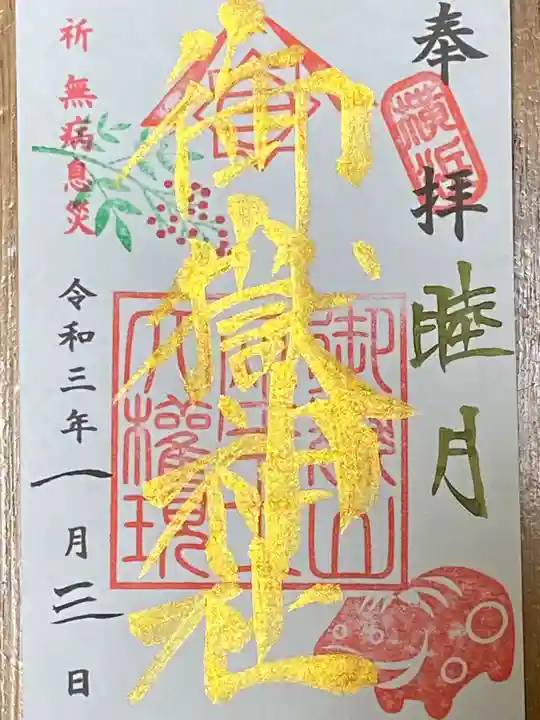 奉拝
睦月
御嶽神社
祈 無病息災
令和三年一月三日